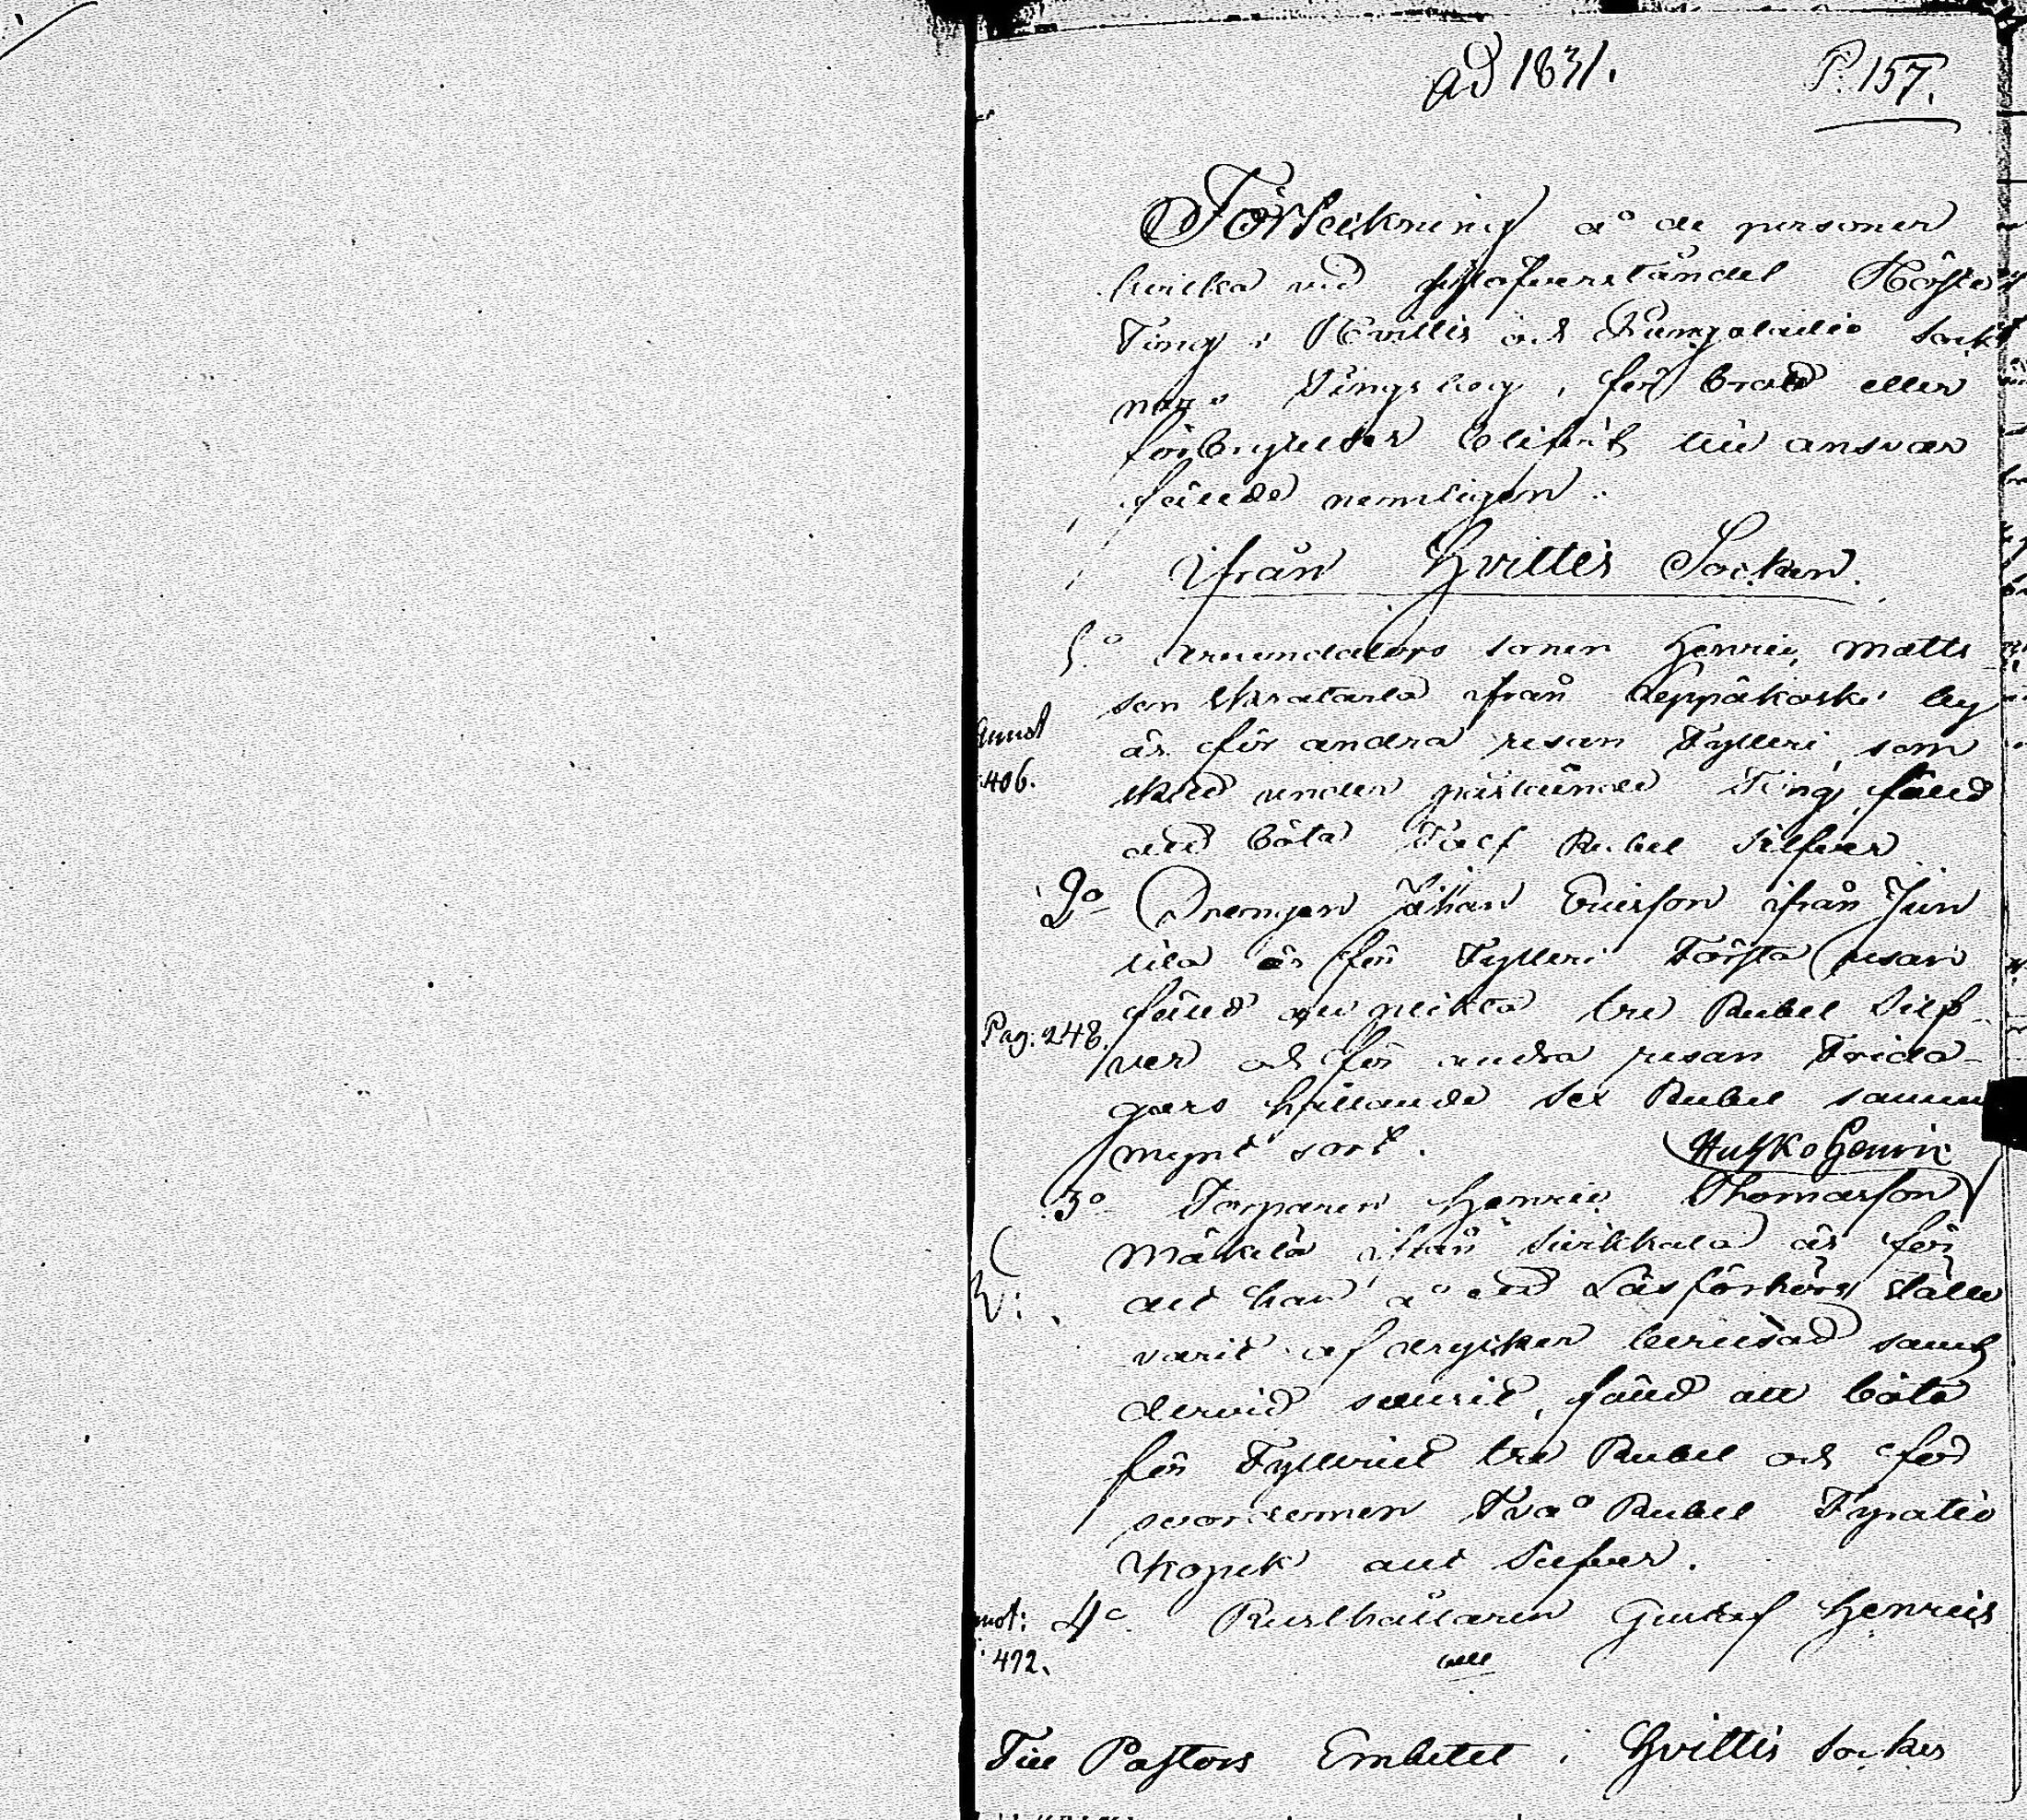 ad 1831.
P. 157.
Förteckning å de personer
hvilka vid sistöfverståndet Höste
Ting i Hvittis och Pungalaitio Sock
nars Tingslag, för brott eller
förbrytelser blifvit till ansvar
fällde nemligen.
ifrån Hvittis Socken.
1º Arrendators sonen Henric Matts
son ifrån Leppäkoski by
är för andra resan Fylleri, som
skedt under påstående Ting, fälld
att böta Tolf Rubel Silfver
Annot
406.
2º Drengen Johan Ericsson ifrån Jun
tila är för Fylleri Första resan
fälld att plikta tre Rubel Silf-
Pag: 248.
ver och för andra resan Frida-
gars hållande Sex Rubel samma
mynt sort.
Huhko Henric
3º Torparen Henric Thomasson
Mäkelä ifrån Suikkala är för
att han å ett Läsförhörs ställe
varit af drycker berusad samt
dervid svurit, fälld att böta
för Fylleriet tre Rubel och för
svordomen Två Rubel Fyratio
Kopek allt Silfver.
4º Rusthållaren Gustaf Henrics
not:
472.
Till Pastors Embetet i Hvittis Socken